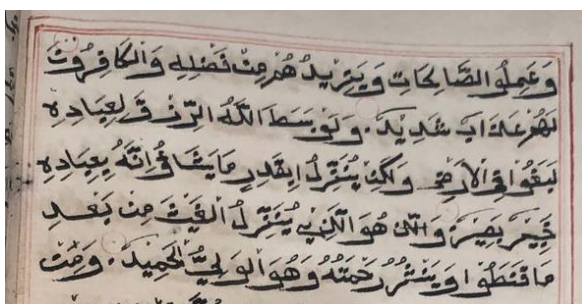 وَعَمِلُوا الصَّالِحَاتِ وَيَزِيدُهُمْ مِنْ فَضْلِهِ وَالْكَافِرُونَ
لَهُمْ عَذَابٌ شَدِيدٌ. وَلَوْ بَسَطَ اللَّهُ الرِّزْقَ لِعِبَادِهِ
لَبَغَوْا فِي الْأَرْضِ وَلَكِنْ يُنَزِّلُ بِقَدَرٍ مَا يَشَاءُ إِنَّهُ بِعِبَادِهِ
خَبِيرٌ بَصِيرٌ وَالَّذِي هُوَ الَّذِي يُنَزِّلُ الْغَيْثَ مِنْ بَعْدِ
مَا قَنَطُوا وَيَنْشُرُ رَحْمَتَهُ وَهُوَ الْوَلِيُّ الْحَمِيدُ. وَمِنْ